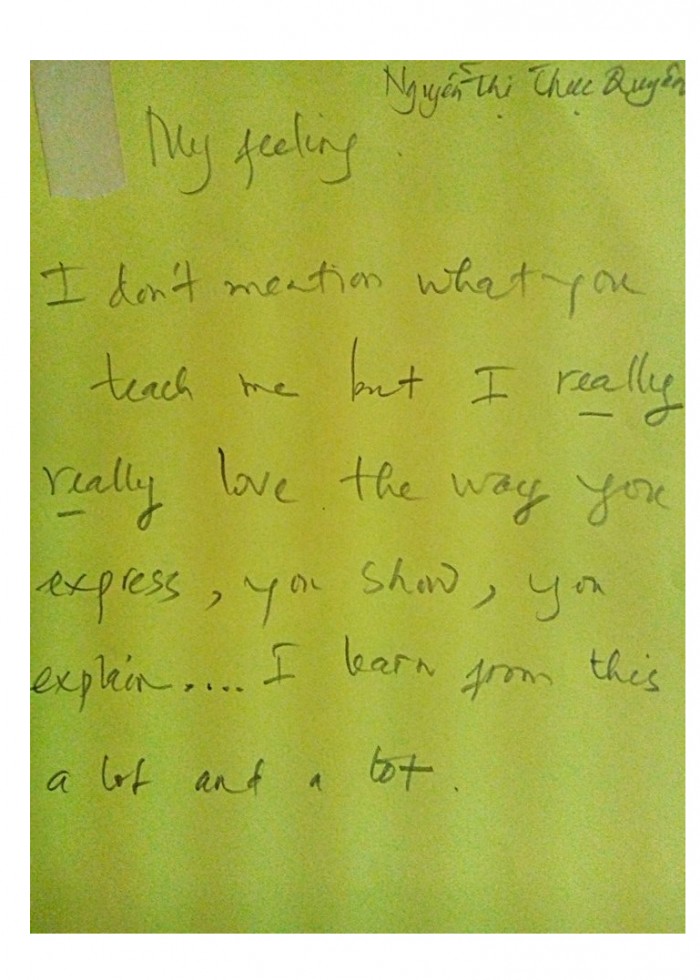 Nguyễn Thị Thục Quyên
My feeling.
I don't mention what you
teach me but I really
really love the way you
express, you show, you
explain.... I learn from this
a lot and a lot.